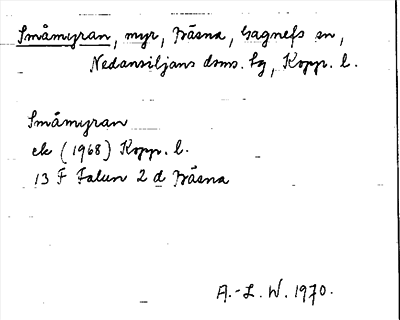 Småmyran, myr, Bäsna, Gagnefs sn,
Nedansiljans doms. hg, Kopp. l.
Småmyran
ek (1968) Kopp. l.
13 F Falun 2 d Bäsna
A.-L. W. 1970.